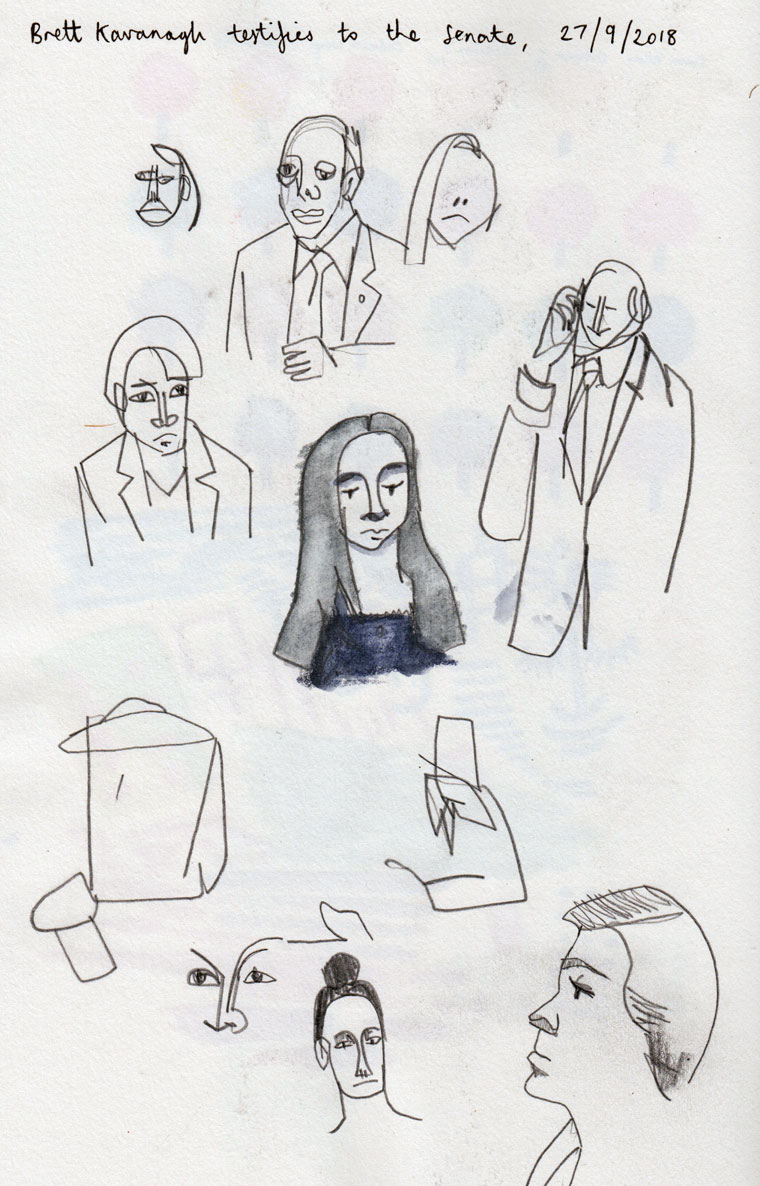 Brett Kavanagh testifies to the Senate, 27/9/2018